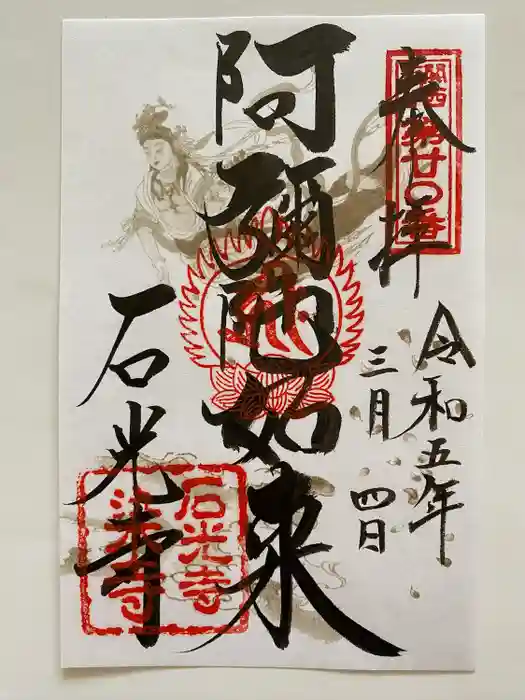 奉拝
関西
第廿〇番
令和五年
三月四日
阿彌陀如来
石光寺
石光寺
染寺